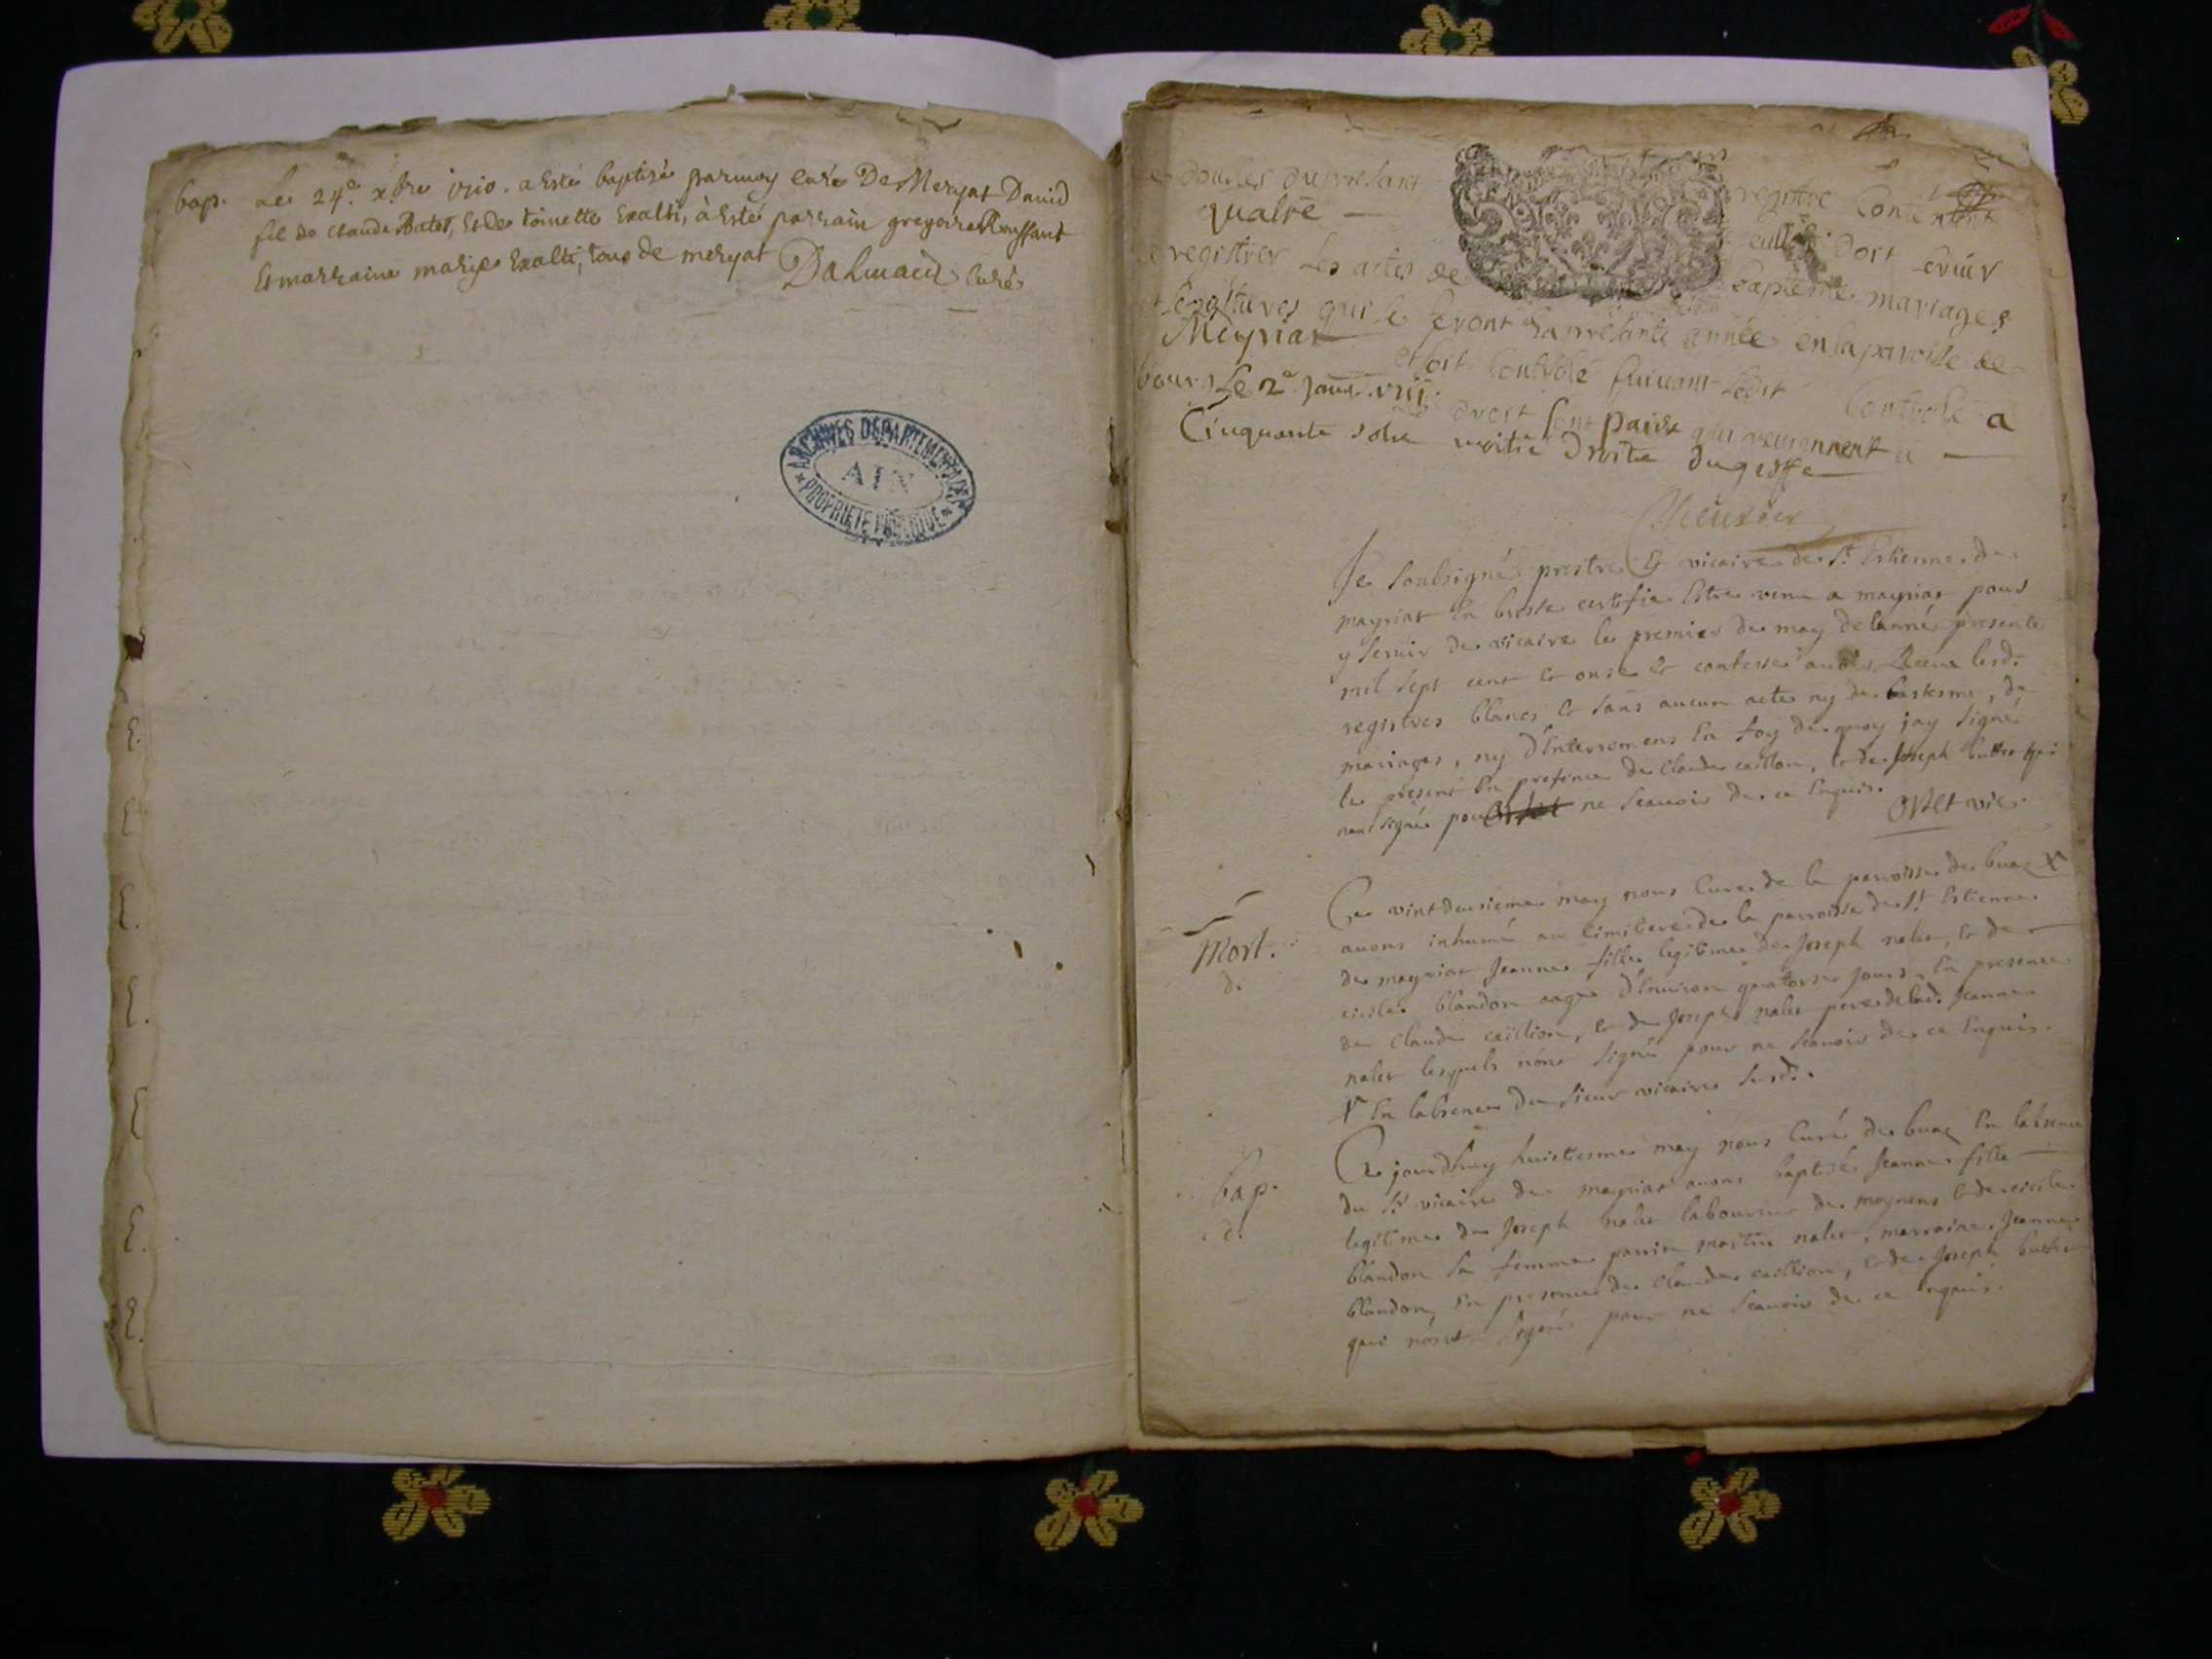 bap. Le 24e xbre 1710. a esté baptisé par moy curé De Meryat David
fil de claude, et de toinette Exalti, à esté parrain gregoire
Et marraine marie Exalti, tous de meryat Dalmais Curé
ARCHIVES DEPARTEMENTALES
AIN
PROPRIETE PUBLIQUE
doubles du presant registre contenant
quatre feuillets doit servir
registrer Les actes de bapteme mariages
sepultures qui se feront la presante année en la paroisse de
Meyriat et soit controlé suivant ledit controlle a
bourg Le 2e janv. 1711. droit sont païés qui reviennent a
Cinquante sols moitié droits du greffe
Je soubsigné prestre et vicaire de St Estienne de
mayriat en bresse certifie estre venu a mayriat pour
y servir de vicaire le premier de may de lanné presente
mil sept cent et onze et confesse avoir Receu lesd.
registres blancs et sans aucun acte ny de batesme, de
mariages, ny d'Enterremens En foy de quoy jay signé
le present En presence de Claude caillon, et de Joseph qui
nont signés pour ne scavoir de ce Enquis. vic.
Mort.
d.
Ce vintdeusieme may nous Curé de la parroisse de
avons inhumé au cimitiere de la parroisse de St Estienne
de mayriat Jeanne fille legitime de Joseph nalet, et de
cicile blandon aagée d'Environ quatorse jours, En presence
de Claude caillion, et de Joseph nalet pere de lad. Jeanne
nalet lesquels nont signé pour ne scavoir de ce Enquis.
En labsence du sieur vicaire susd.
bap.
d.
Ce jourdhuy huistiesme may nous Curé de En labsence
du Sr vicaire de mayriat avons baptisé Jeanne fille
legitime de Joseph nalet laboureur de et de cicile
blandon sa femme parrin martin nalet, marraine Jeanne
blandon, En presence de Claude caillion, et de Joseph
qui nont signés pour ne scavoir de ce Enquis.